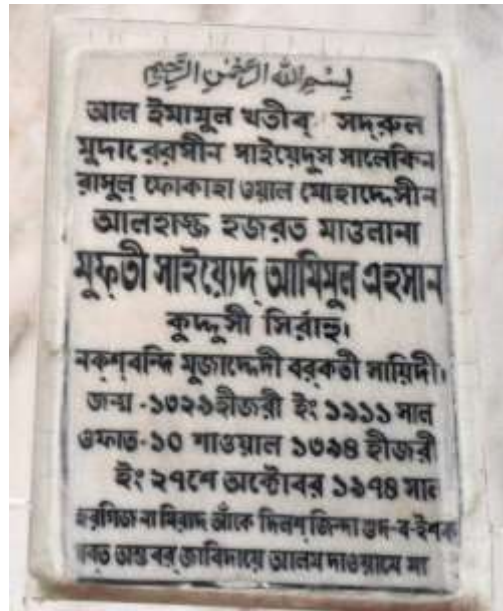 بسم الله الرحمن الرحيم
আল ইমামুল খতীব্ সদরুল
মুদাররেসীন সাইয়েদুস সালেকিন
রাসুল্ ফোকাহা ওয়াল মোহাদ্দেসীন
আলহাজ্জ হজরত মাওলানা
মুফ্তী সাইয়্যেদ্ আমিমুল এহসান
কুদ্দুসী সির্রাহু।
নক্শ্বন্দি মুজাদ্দেদী বরকতী মায়িদী।
জন্ম -১৩২৯হীজরী ইং ১৯১১ সাল
ওফাত-১০ শাওয়াল ১৩৯৪ হীজরী
ইং ২৭শে অক্টোবর ১৯৭৪ সাল
হরগিজ না মিরাদ আঁকে দিলশ্ জিন্দা শুদ-ব-ইশক
আস্ত বর্ জারিদায়ে আলম দাওয়ামে মা